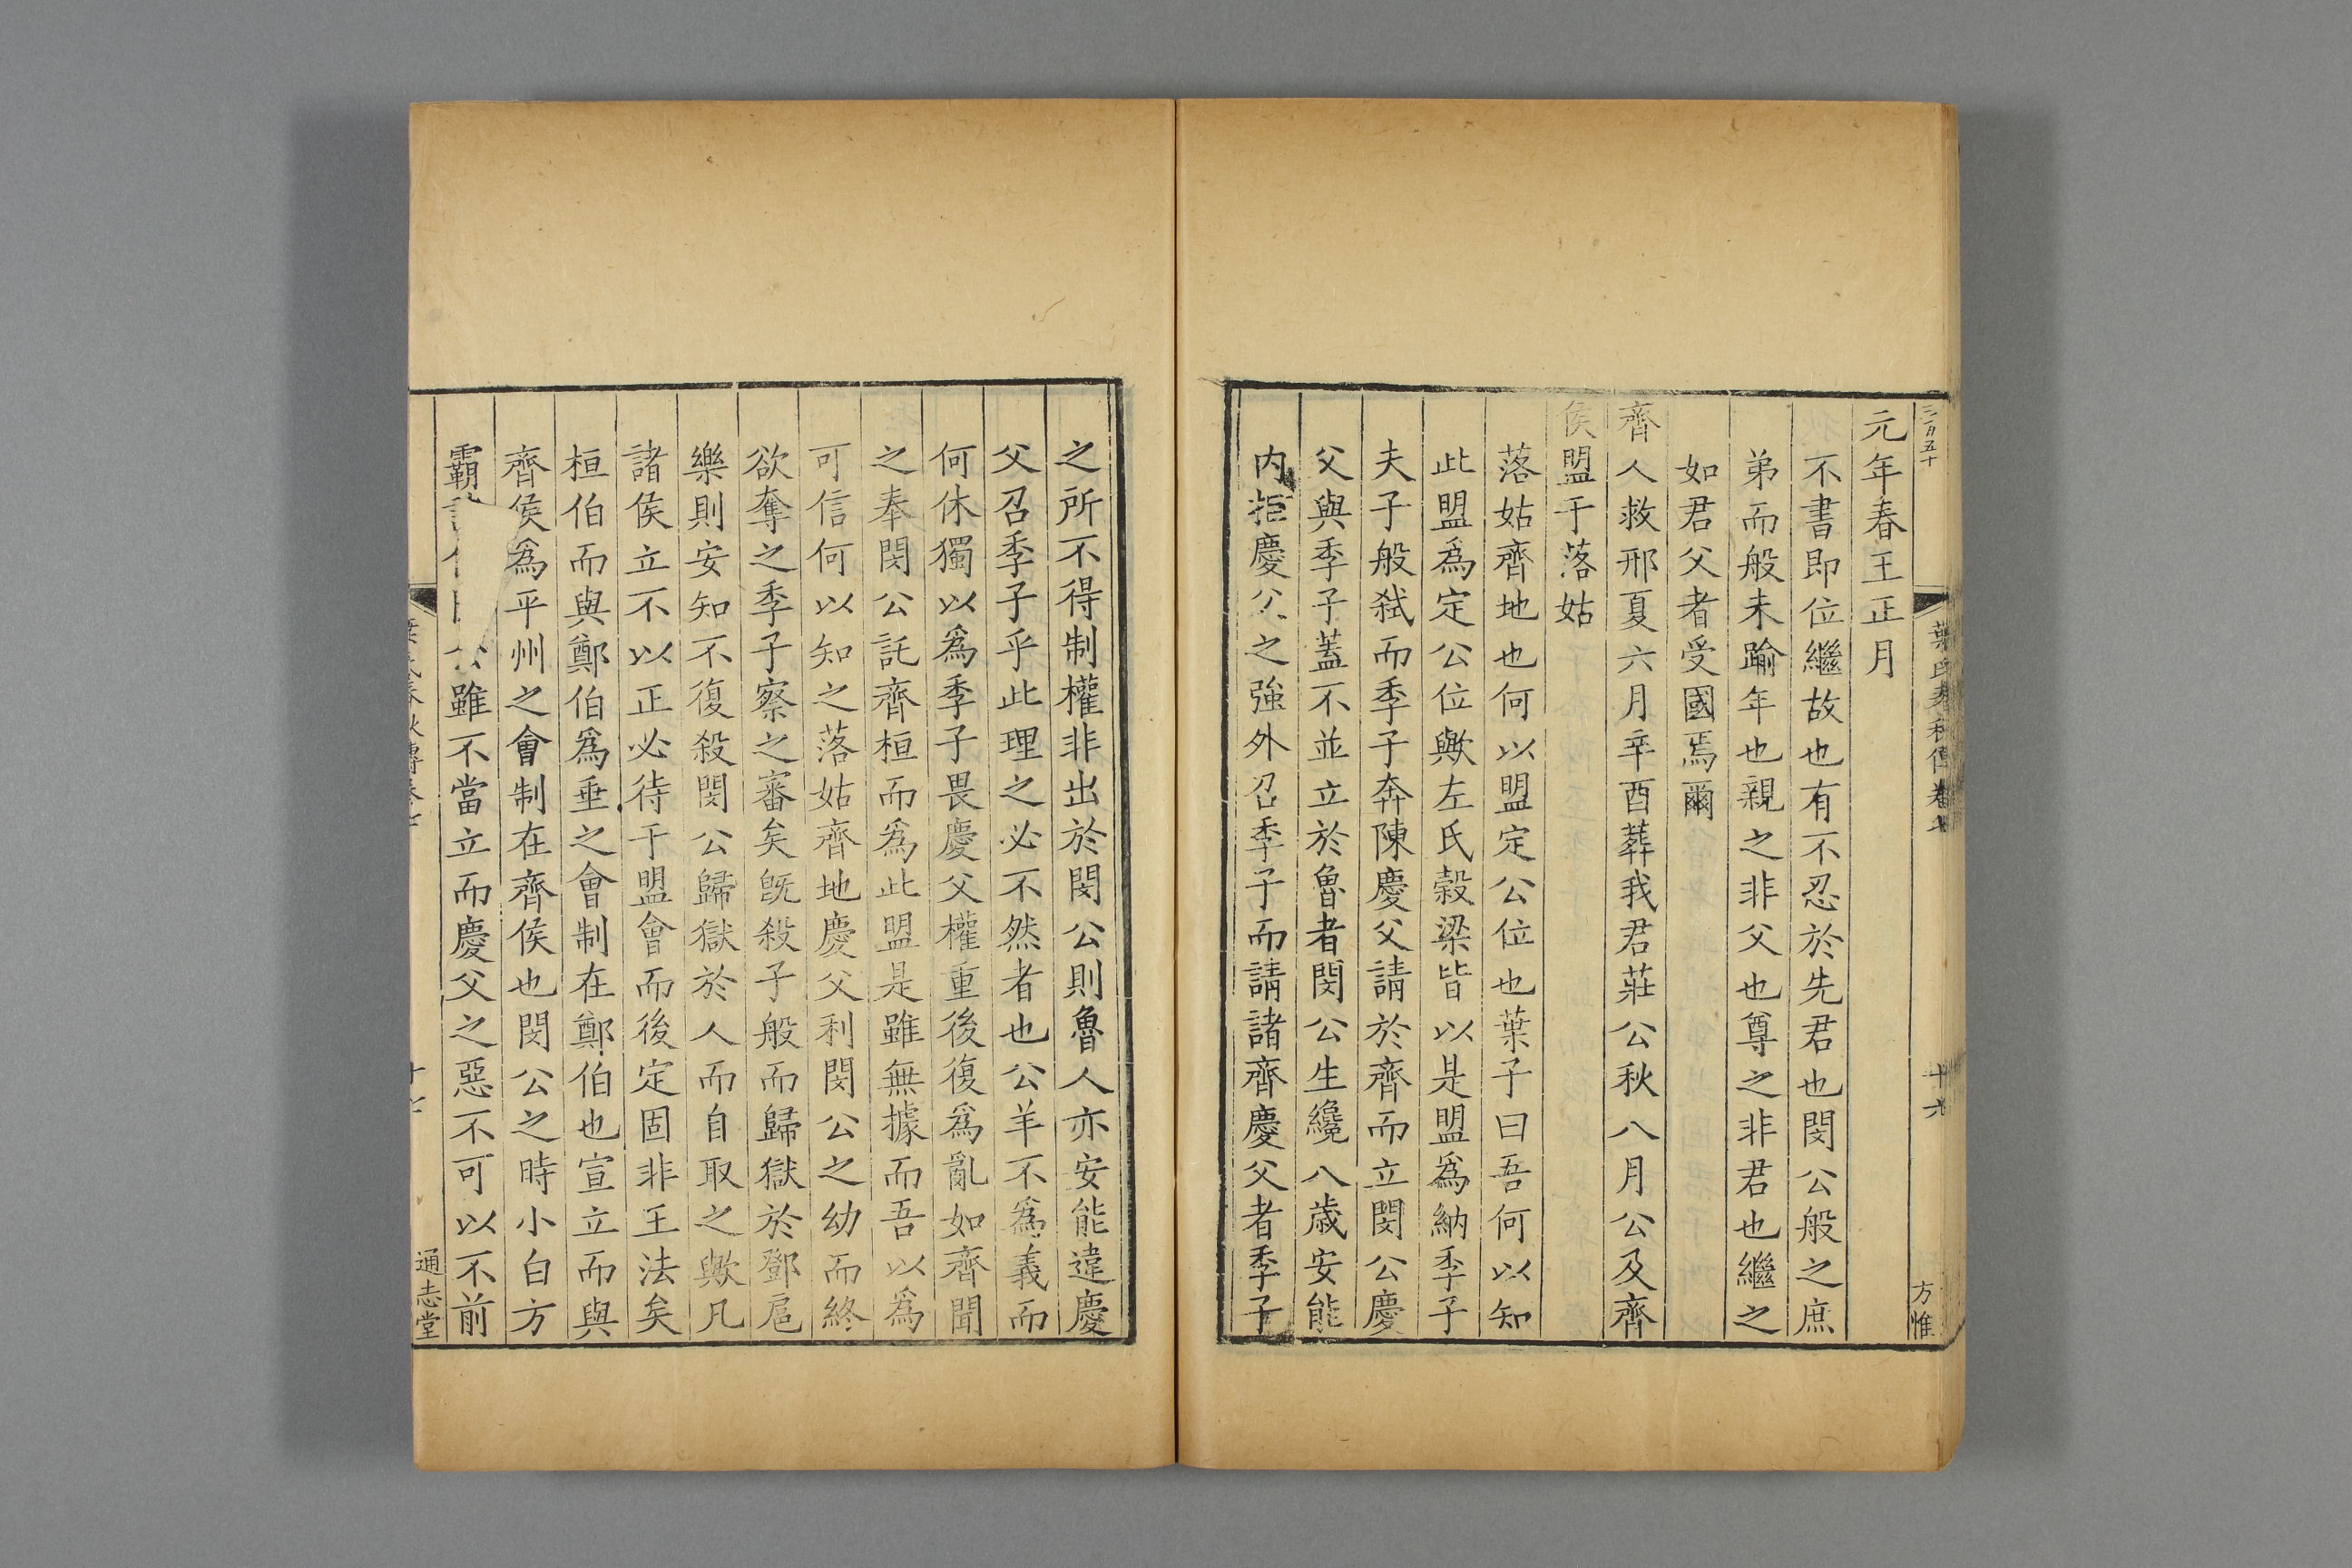 三百五十
葉氏春秋傳卷七
十六
方惟
元年春王正月
不書即位繼故也有不忍於先君也閔公般之庶
弟而般未踰年也親之非父也尊之非君也繼之
如君父者受國焉爾
齊人救邢夏六月辛酉葬我君莊公秋八月公及齊
侯盟于落姑
落姑齊地也何以盟定公位也葉子曰吾何以知
此盟爲定公位歟左氏穀梁皆以是盟爲納季子
夫子般弑而季子奔陳慶父請於齊而立閔公慶
父與季子蓋不並立於魯者閔公生纔八歲安能
内拒慶父之強外召季子而請諸齊慶父者季子
之所不得制權非出於閔公則魯人亦安能違慶
父召季子乎此理之必不然者也公羊不爲義而
何休獨以爲季子畏慶父權重後復爲亂如齊聞
之奉閔公託齊桓而爲此盟是雖無據而吾以爲
可信何以知之落姑齊地慶父利閔公之幼而終
欲奪之季子察之審矣旣殺子般而歸獄於鄧扈
樂則安知不復殺閔公歸獄於人而自取之歟凡
諸侯立不以正必待于盟會而後定固非王法矣
桓伯而與鄭伯爲垂之會制在鄭伯也宣立而與
齊侯爲平州之會制在齊侯也閔公之時小白方
霸公雖不當立而慶父之惡不可以不前
葉氏春秋傳卷七
十七
通志堂